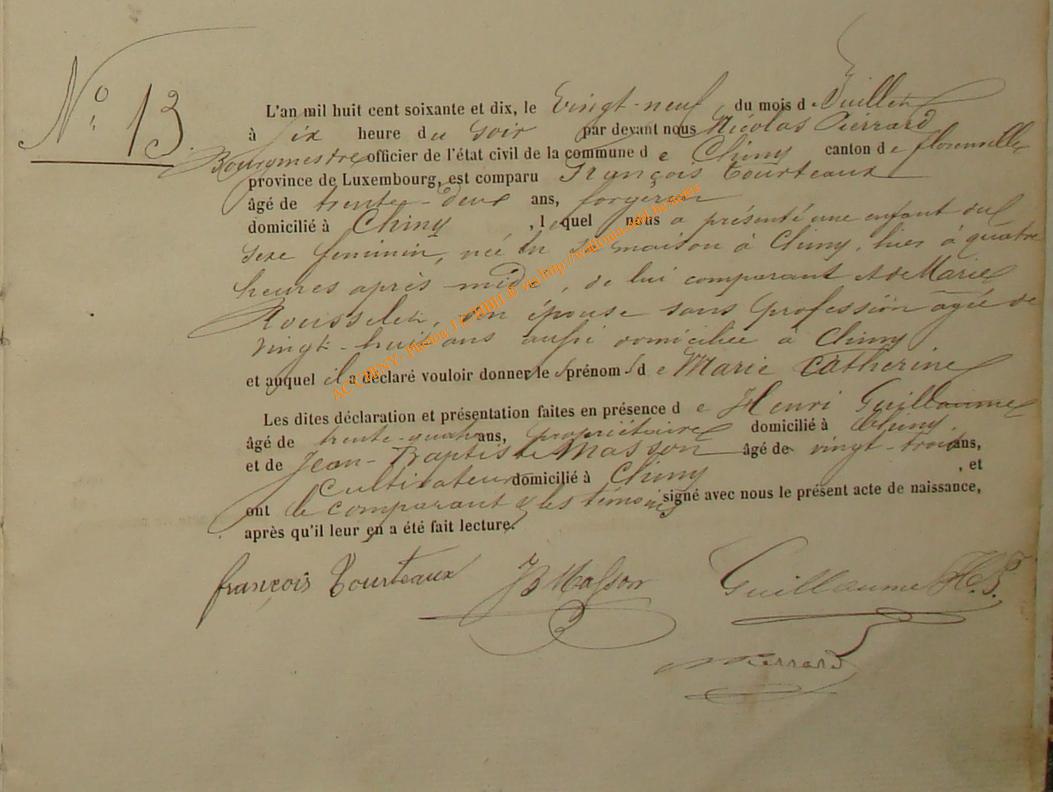 N° 13
L'an mil huit cent soixante et dix, le Vingt-neuf du mois de Juillet
à six heure du soir par devant nous Nicolas Pierrard
Bourgmestre officier de l'état civil de la commune de Chiny canton de florenville
province de Luxembourg, est comparu François Tourteaux
âgé de trente-deux ans, forgeron
domicilié à Chiny, lequel nous a présenté une enfant du
sexe feminin, née en sa maison à Chiny, hier à quatre
heures après-midi, de lui comparant et de Marie
Rousselet, son épouse sans profession agée de
vingt-huit ans aussi domiciliée à Chiny
et auquel il a déclaré vouloir donner les prénoms de Marie Catherine
Les dites déclaration et présentation faites en présence de Henri Guillaume
âgé de trente-quatre ans, propriétaire domicilié à Chiny
et de Jean-Baptiste Masson âgé de vingt-trois ans,
Cultivateur domicilié à Chiny, et
ont le comparant & les témoins signé avec nous le présent acte de naissance,
après qu'il leur en a été fait lecture.
françois Tourteaux JB Masson Guillaume H.J.
NPierrard